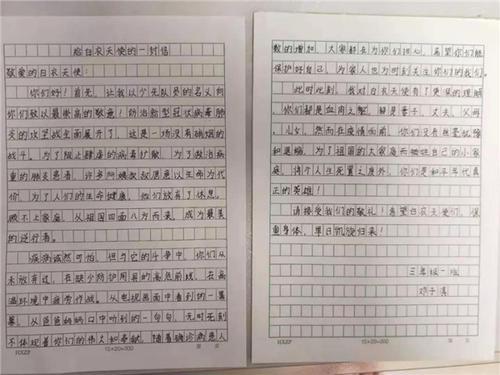 给白衣天使的一封信
敬爱的白衣天使：
你们好！首先，让我以个少先队员的名义向
你们致以最崇高的敬意！防治新型冠状病毒肺
炎的攻坚战全面展开了，这是一场没有硝烟的
战斗。为了阻止肆虐的病毒扩散，为了救治病
重的肺炎患者，许多阿姨叔叔愿意以生命为代
价，为了人们的生命健康，他们放弃了休息，
顾不上家庭，从祖国四面八方而来，成为最美
的逆行者。
疾病诚然可怕，但与它的斗争中，你们从
未放弃过，在缺少防护用具的高危前线，在病
毒环境中疲劳作战。从电视画面中看到的一幕
幕，从爸爸妈妈口中听到的一句句，无时无刻
不体现着你们的伟大和奉献。随着确诊病患人
15×20=300
数的增加，大家都在为你们担心，希望你们能
保护好自己，为家人也为时刻关注你们的我们。
此时此刻，我对白衣天使有了更深的理解
，你们都是血肉之躯，都是妻子、丈夫、父母
、儿女，然而在疫情面前，你们没有丝毫犹豫
和退缩，为了祖国的大家庭而牺牲自己的小家
庭，将个人生死置之度外，你们是和平年代真
正的英雄！
请接受我们的敬礼！希望白衣天使们，保
重身体，早日凯旋归来！
三年级一班
邓子淇
15×20=300